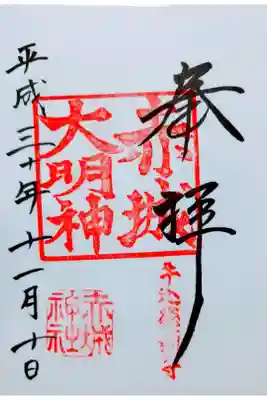 奉拝
赤城
大明神
赤城
神社
平成三十年十一月十日